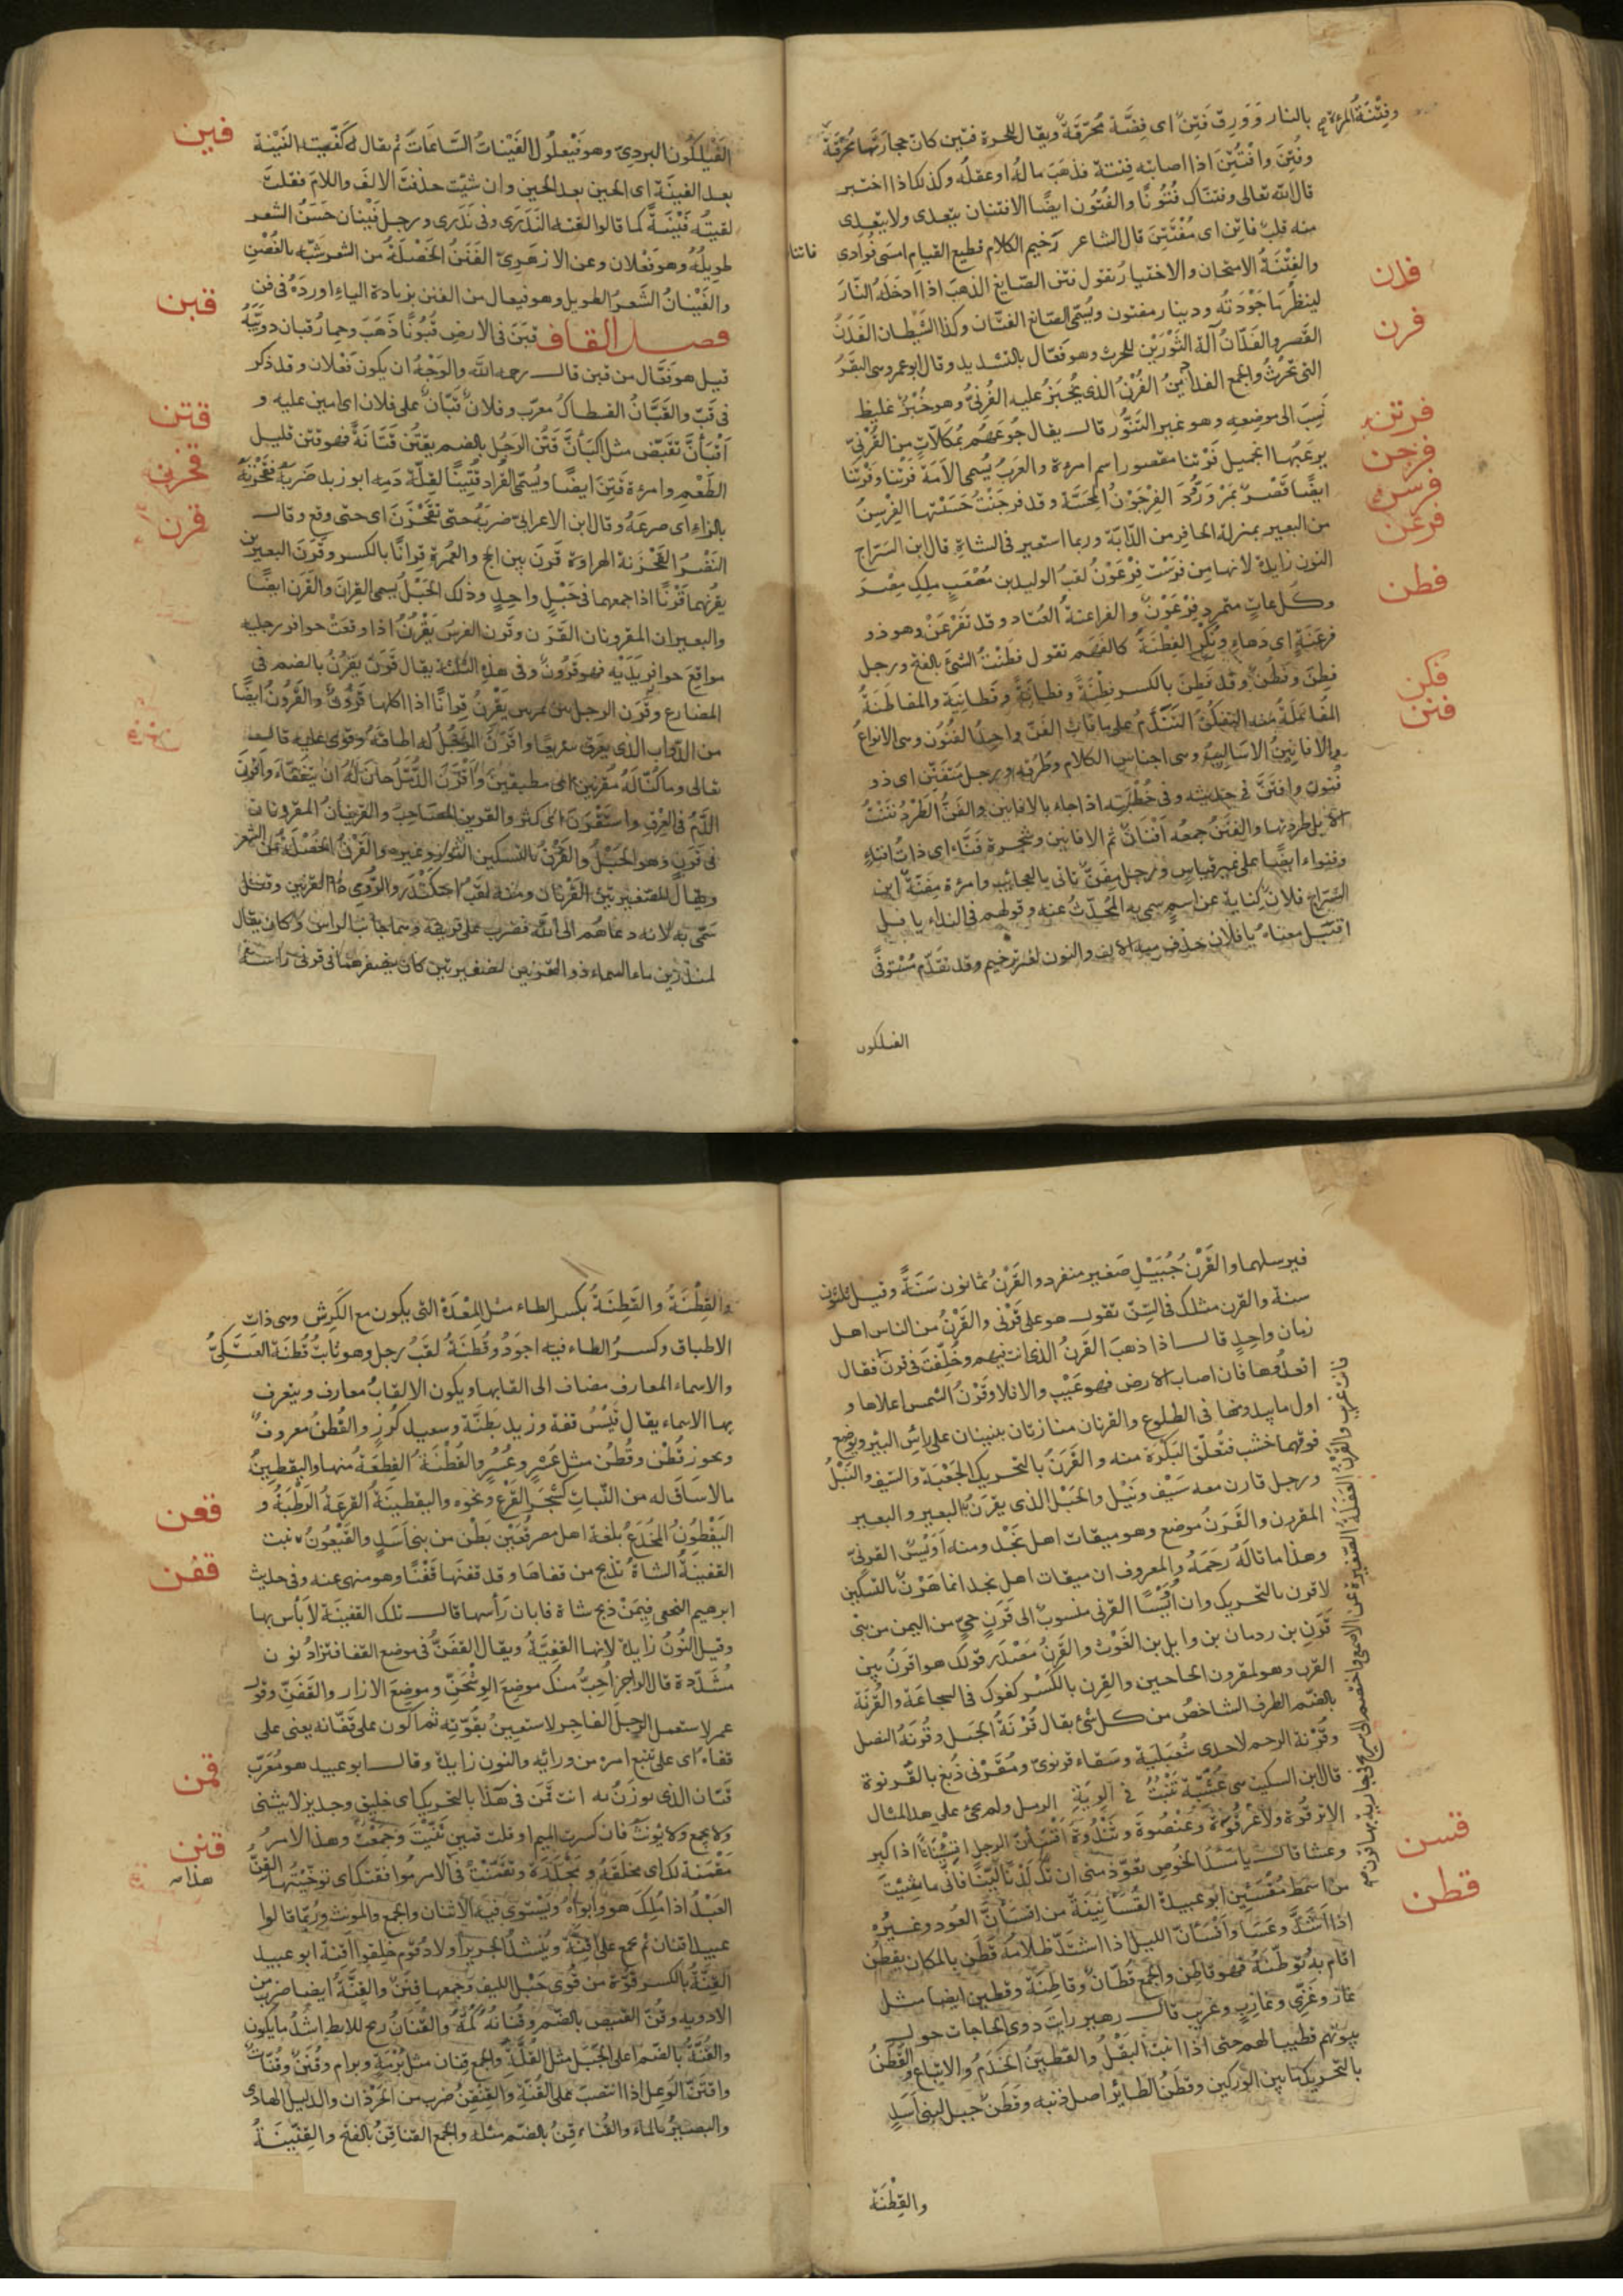 وفتنة المرءة بالنار وورق فتين اى فضة محرقة ويقال للحرة فتين كان حجارتها محرقة
وفتن وافتتن اذا اصابته فتنة فذهب ماله او عقله وكذلك اذا اختبر
قال الله تعالى وفتناك فتونا والفتون ايضا الافتتان يتعدى ولا يتعدى
منه قلب فاتن اى مفتتن قال الشاعر رخيم الكلام قطيع القيام امسى فوادى
فاتنا
والفتنة الامتحان والاختبار تقول فتن الصايغ الذهب اذا ادخله النار
لينظر ما جودته ودينار مفتون ويسمى الصائغ الفتان وكذا الشيطان الفدن
فدن
القصر والفدان آلة الثورين للحرث وهو فعال بالتشديد وقال ابو عمرو هى البقر
فرن
التى تحرث والجمع الفدادين الفرن الذى يخبز عليه الفرنى وهو خبز غليظ
نسب الى موضعه وهو غير التنور قال يقال جوعهم بمكللات من الفرنى
فرتن
يرعبها الجميل فرتنا مقصور اسم امرءة والعرب تسمى الامة فرتنا وفرتنا
فرجن
ايضا قصر بمرو روذ الفرجون المحسة وقد فرجنت حسنتها الفرسن
فرسن
من البعير بمنزلة الحافر من الدابة وربما استعير فى الشاة قال ابن السراج
فرعن
النون زايدة لانها من فرست فرعون لقب الوليد بن مصعب ملك مصر
وكل عات متمرد فرعون والفراعنة العتاد وقد تفرعن وهو ذو
فطن
فرعنة اى دهاء ونكر الفطنة كالفهم تقول فطنت الشئ بالفتح ورجل
فطن وفطن وقد فطن بالكسر فطنة وفطانة وفطانية والمفاطنة
فكن
المفاعلة منه التفكن التندم على ما فات الفن واحد الفنون وهى الانواع
فنن
والافانين الاساليب وهى اجناس الكلام وطرقه ورجل متفنن اى ذو
فنون وافتن فى حديثه وفى خطبته اذا جاء بالافانين والفن الطرد فننت
الابل طردتها والفنن جمعه افنان ثم الافانين وشجرة فناء اى ذات افنان
وفنواء ايضا على غير قياس ورجل مفن ياتى بالعجائب وامرءة مفنة ابن
السراج فلان كناية عن اسم سمى به المحدث عنه وقولهم فى النداء يا فل
اقتبل معناه يا فلان حذف منه الالف والنون لغير ترخيم وقد تقدم مستوفى
الفيلكون
الفيلكون البردى وهو فيعلول الفينات الساعات ثم يقال لقيته الفينة
فين
بعد الفينة اى الحين بعد الحين وان شيت حذفت الالف واللام فقلت
لقيته فينة كما قالوا لقيته الندرى وفى ندرى ورجل فينان حسن الشعر
طويله وهو فعلان وعن الازهرى الفنن الخصلة من الشعر شبه بالغصن
والفينان الشعر الطويل وهو فيعال من الفنن بزيادة الياء اورده فى فنن
فصل القاف قبن فى الارض قبونا ذهب وحمار قبان دويبة
قبن
قيل هو فعال من قبن قال رحمه الله والوجه ان يكون فعلان وقد ذكر
فى قب والقبان القسطاس معرب وفلان قبان على فلان اى امين عليه و
اقبأن تقبض مثل اكبأن قتن الرجل بالضم يقتن قتانة فهو قتين قليل
قتن
الطعم وامرءة قتين ايضا ويسمى القراد قتينا لقلة دمه ابو زيد ضربه فقحزنه
قحزن
بالزاء اى صرعه وقال ابن الاعرابى ضربه حتى تقحزن اى حتى وقع وقال
النضر القحزنة الهراوة قرن بين الحج والعمرة قرانا بالكسر وقرن البعيرين
قرن
يقرنهما قرنا اذا جمعهما فى حبل واحد وذلك الحبل يسمى القران والقرن ايضا
والبعيران المقرونان القرن وقرن الفرس يقرن اذا وقعت حوافر رجليه
مواقع حوافر يديه فهو قرون وفى هذه الثلثة يقال قرن يقرن بالضم فى
من الدواب الذى يعرق سريعا واقرن الرجل له اطاقه وقوى عليه قال
تعالى وما كنا له مقرنين اى مطيقين واقرن الدمل حان له ان يتفقأ واقرن
الدم فى العرق واستقرن اى كثر والقرين المصاحب والقرينان المقرونان
فى قرن وهو الحبل والقرن بالتسكين الثور وغيره والقرن الخصلة من الشعر
سمى به لانه دعاهم الى الله فضرب على قرنيه وهما جانبا الراس وكان يقال
لمنذر بن ماء السماء ذو القرنين لضفيرتين كان يضفرهما فى قرنى راسه
فيرسلهما والقرن جبيل صغير منفرد والقرن ثمانون سنة وقيل ثلثون
سنة والقرن مثلك فى السن تقول هو على قرنى والقرن من الناس اهل
زمان واحد قال اذا ذهب القرن الذى انت فيهم وخلفت فى قرن فقال
اول ما يبدو منها فى الطلوع والقرنان منارتان تبنيان على رأس البير ويوضع
فوقهما خشب فتعلق البكرة منه والقرن بالتحريك الجعبة والسيف والنبل
ورجل قارن معه سيف ونبل والحبل الذى يقرن به البعير والبعير
المقرون والقرن موضع وهو ميقات اهل نجد ومنه اويس القرنى
وهذا ما قاله رحمه والمعروف ان ميقات اهل نجد انما هو قرن بالتسكين
لا قرن بالتحريك وان اويسا القرنى منسوب الى قرن حى من اليمن من بنى
قرن بن ردمان بن وايل بن الغوث والقرن مصدر قولك هو اقرن بين
القرن وهو المقرون الحاجبين والقرن بالكسر كفوك فى الشجاعة والقرنة
بالضم الطرف الشاخص من كل شئ يقال قرنة الجبل وقرنة النصل
وقرنة الرحم لاحدى شعبتيه وسقاء قرنوى ومقرنى دبغ بالقرنوة
قال ابن السكيت هى عشبة تنبت فى الوية الرمل ولم يجئ على هذا المثال
الا ترقوة وعرقوة وعنصوة وثندوة اقسأن الرجل اقسئنانا اذا كبر
قسن
وعسا قال يا مسد الخوص تعوذ منى ان تك لدنا لينا فانى ما شيت
من اشمط مقسئن ابو عبيدة القسأنينة من اقسأن العود وغيره
قطن
اذا اشتد وعسا واقسأن الليل اذا اشتد ظلامه قطن بالمكان يقطن
اقام به توطنه فهو قاطن والجمع قطان وقاطنة وقطين ايضا مثل
غاز وغزى وعازب وعزيب قال زهير رايت ذوى الحاجات حول
بيوتهم قطينا لهم حتى اذا انبت البقل والقطين الخدم والاتباع والقطن
بالتحريك ما بين الوركين وقطن الطاير اصل ذنبه وقطن جبل لبنى اسد
والقطنة
والقطنة والقطنة بكسر الطاء مثل المعدة التى يكون مع الكرش وهى ذات
الاطباق وكسر الطاء فيه اجود وقطنة لقب رجل وهو ثابت قطنة العتكى
والاسماء المعارف تضاف الى القابها ويكون الالقاب معارف ويتعرف
بها الاسماء يقال قيس قفة وزيد بطة وسعيد كرز والقطن معروف
ويجوز قطن وقطن مثل عسر وعسر والقطنة القطعة منها واليقطين
ما لا ساق له من النبات كشجر القرع ونحوه واليقطينة القرعة الرطبة و
قعن
القفينة الشاة تذبح من قفاها وقد قفنها قفنا وهو منهى عنه وفى حديث
قفن
ابرهيم النخعى فيمن ذبح شاة فابان رأسها قال تلك القفينة لا بأس بها
وقيل النون زايدة لانها القفية ويقال القفن فى موضع القفا فتزاد نون
مشددة قال الراجز احب منك موضع الوشحن وموضع الازار والقفن وقول
عمر لاستعمل الرجل الفاجر لاستعين بقوته ثم اكون على قفانه يعنى على
قفاه اى على تتبع امره من ورائه والنون زايدة وقال ابو عبيد هو معرب
قبان الذى يوزن به انت قمن فى هذا بالتحريك اى خليق وجدير لا يثنى
قمن
ولا يجمع ولا يونث فان كسرت الميم او قلت قمين ثنيت وجمعت وهذا الامر
مقمنة لك اى مخلقة ومجدرة وتقمنت فى الامر موافقتك اى توخيتها القن
قنن
العبد اذا ملك هو وابواه ويستوى فيه الاثنان والجمع والمونث وربما قالوا
عبيد اقنان ثم يجمع على اقنة وينشد لجرير اولاد قوم خلقوا اقنة ابو عبيد
القنة بالكسر قوة من قوى حبل الليف وجمعها قنن والقنة ايضا ضرب من
الادوية وقن القميص بالضم وقنانه كمه والقنان ريح للابط اشد ما يكون
والقنة بالضم اعلى الجبل مثل القلة والجمع قنان مثل برمة وبرام وقنن وقنات
واقتن الوعل اذا انتصب على القنة والقنقن ضرب من الجرذان والدليل الهادى
والبصير بالماء والقناقن بالضم مثله والجمع القناقن بالفتح والقنينة